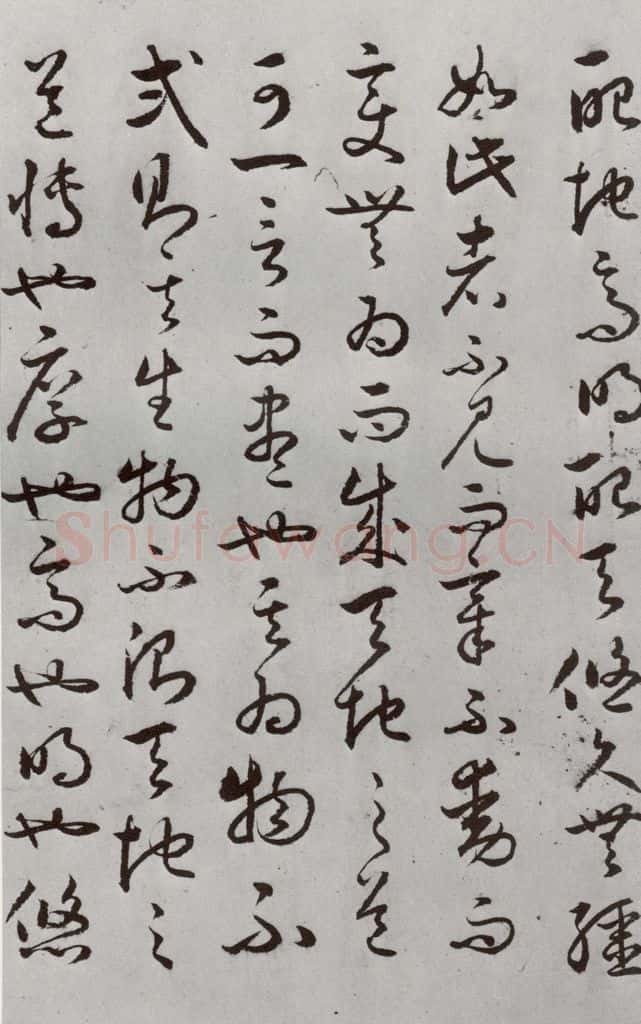 配地高明配天悠久無疆
如此者不見而章不動而
變無為而成天地之道
可一言而盡也其為物不
弍則其生物不測天地之
道博也厚也高也明也悠
Shufawang.CN